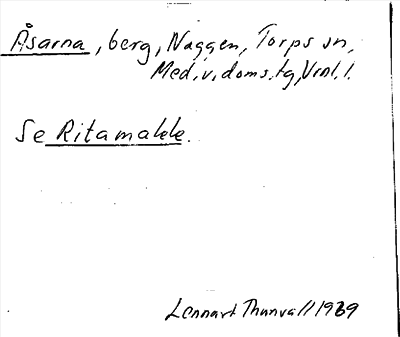 Åsarna, berg, Naggen, Torps sn,
Med.v.doms.tg, Vrnl.l.
Se Ritamakk.
Lennart Thunvall 1939